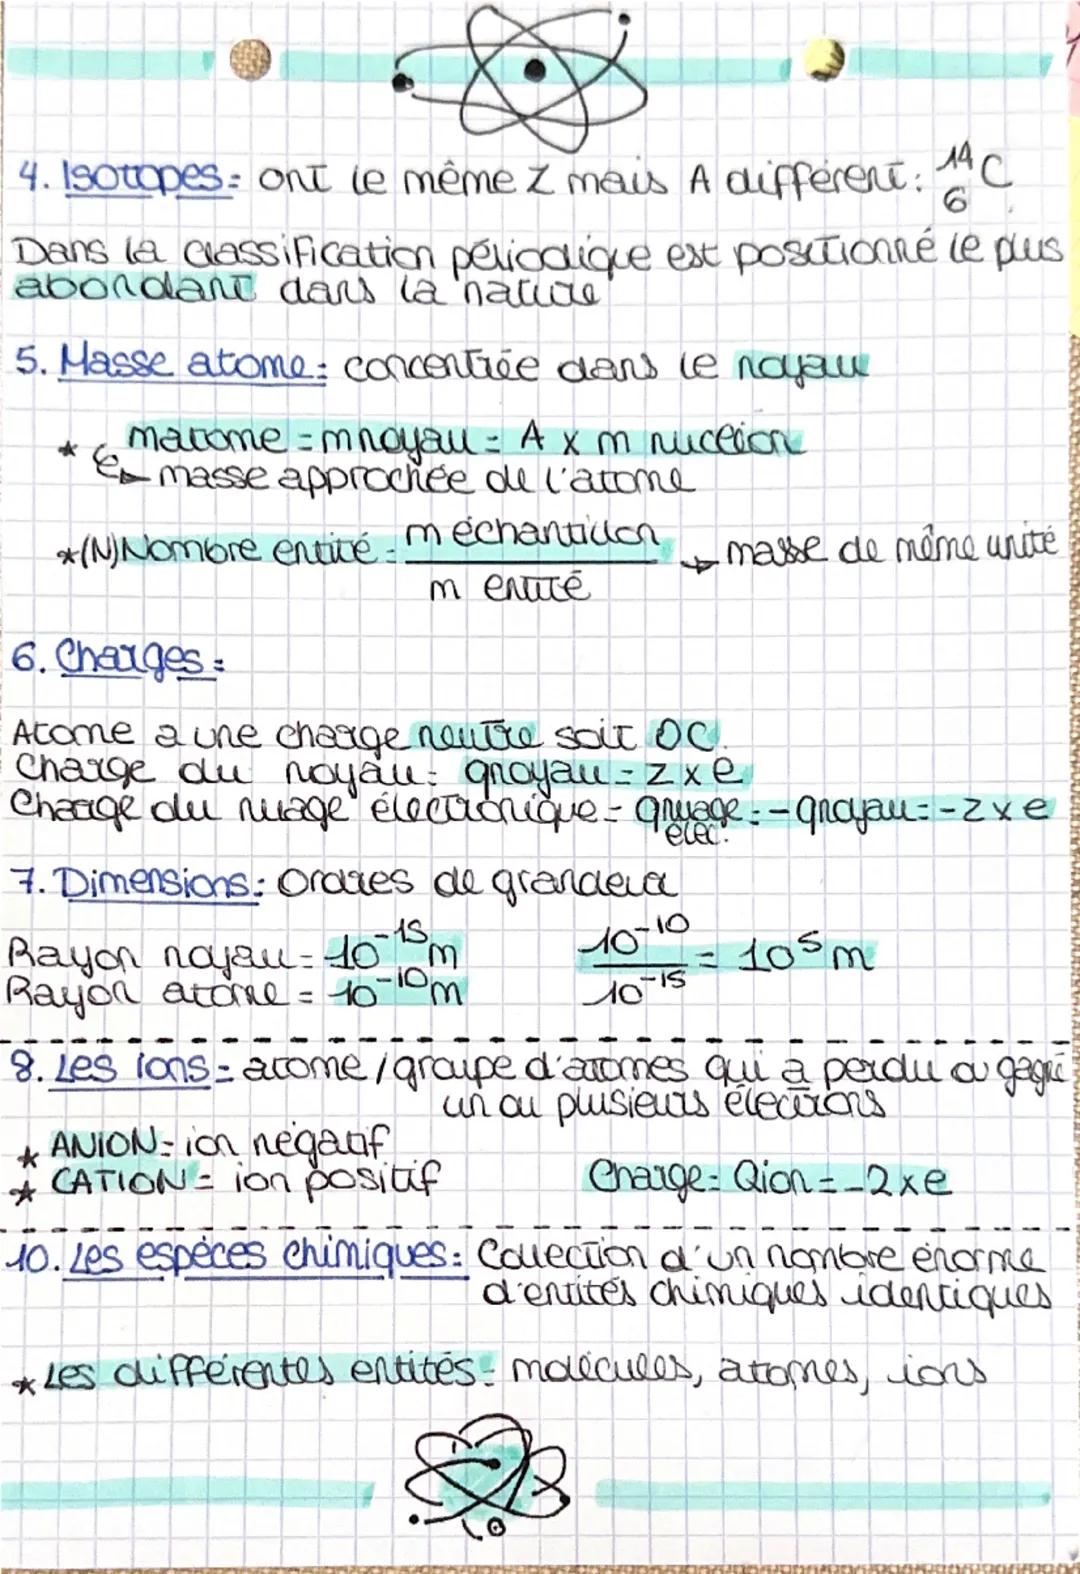 4. Isotopes: ont le même Z mais A différent: ¹⁴₆C
Dans la classification périodique est positionné le plus
abondant dans la nature
5. Masse atome: concentrée dans le noyau
* matome = mnoyau = A x m nucléon
↳ masse approchée de l'atome
*(N) Nombre entité = m échantillon / m entité → masse de même unité
6. Charges:
Atome a une charge neutre soit 0C.
Charge du noyau: qnoyau = z x e
Charge du nuage électronique = qnuage élec. = -qnoyau = -z x e
7. Dimensions: Ordres de grandeur
Rayon noyau = 10⁻¹⁵ m
Rayon atome = 10⁻¹⁰ m
10⁻¹⁰ / 10⁻¹⁵ = 10⁵ m
8. Les ions = atome / groupe d'atomes qui a perdu ou gagné
un ou plusieurs électrons
* ANION = ion négatif
* CATION = ion positif
Charge = Qion = -2 x e
10. Les espèces chimiques: Collection d'un nombre énorme
d'entités chimiques identiques
* Les différentes entités: molécules, atomes, ions